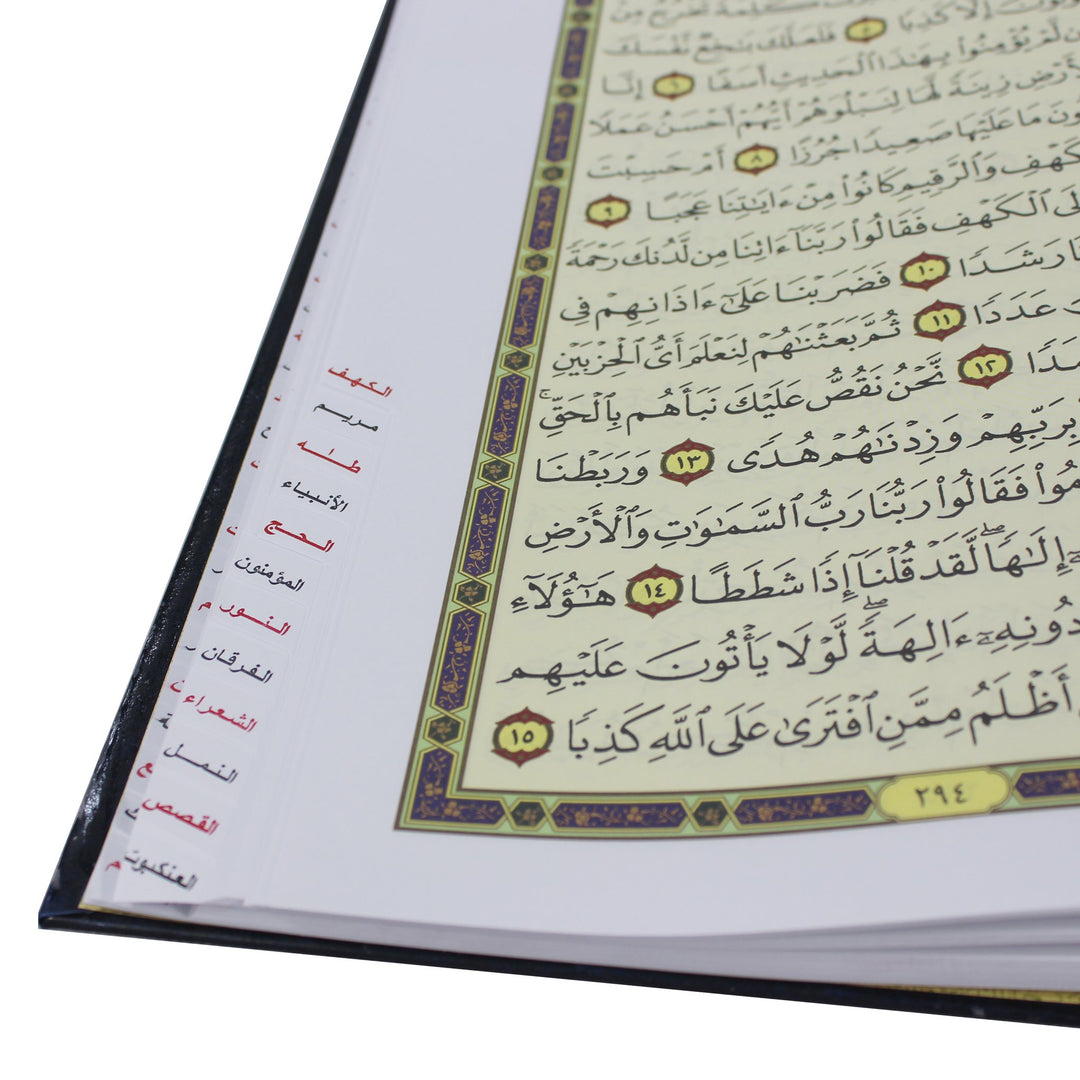 كَلِمَةً تَخْرُجُ مِنْ
إِلَّا كَذِبًا ٥ فَلَعَلَّكَ بَٰخِعٌ نَّفْسَكَ
لَّمْ يُؤْمِنُوا۟ بِهَٰذَا ٱلْحَدِيثِ أَسَفًا ٦ إِنَّا
زِينَةً لَّهَا لِنَبْلُوَهُمْ أَيُّهُمْ أَحْسَنُ عَمَلًا
مَا عَلَيْهَا صَعِيدًا جُرُزًا ٨ أَمْ حَسِبْتَ
وَٱلرَّقِيمِ كَانُوا۟ مِنْ ءَايَٰتِنَا عَجَبًا ٩
ٱلْكَهْفِ فَقَالُوا۟ رَبَّنَآ ءَاتِنَا مِن لَّدُنكَ رَحْمَةً
رَشَدًا ١٠ فَضَرَبْنَا عَلَىٰٓ ءَاذَانِهِمْ فِى
عَدَدًا ١١ ثُمَّ بَعَثْنَٰهُمْ لِنَعْلَمَ أَىُّ ٱلْحِزْبَيْنِ
١٢ نَّحْنُ نَقُصُّ عَلَيْكَ نَبَأَهُم بِٱلْحَقِّ ۚ
بِرَبِّهِمْ وَزِدْنَٰهُمْ هُدًى ١٣ وَرَبَطْنَا
فَقَالُوا۟ رَبُّنَا رَبُّ ٱلسَّمَٰوَٰتِ وَٱلْأَرْضِ
إِلَٰهًا ۖ لَّقَدْ قُلْنَآ إِذًا شَطَطًا ١٤ هَٰٓؤُلَآءِ
دُونِهِۦٓ ءَالِهَةً ۖ لَّوْلَا يَأْتُونَ عَلَيْهِم
أَظْلَمُ مِمَّنِ ٱفْتَرَىٰ عَلَى ٱللَّهِ كَذِبًا ١٥
٢٩٤
الكهف
مريم
طـه
الأنبياء
الحج
المؤمنون
النور
الفرقان
الشعراء
النمل
القصص
العنكبوت